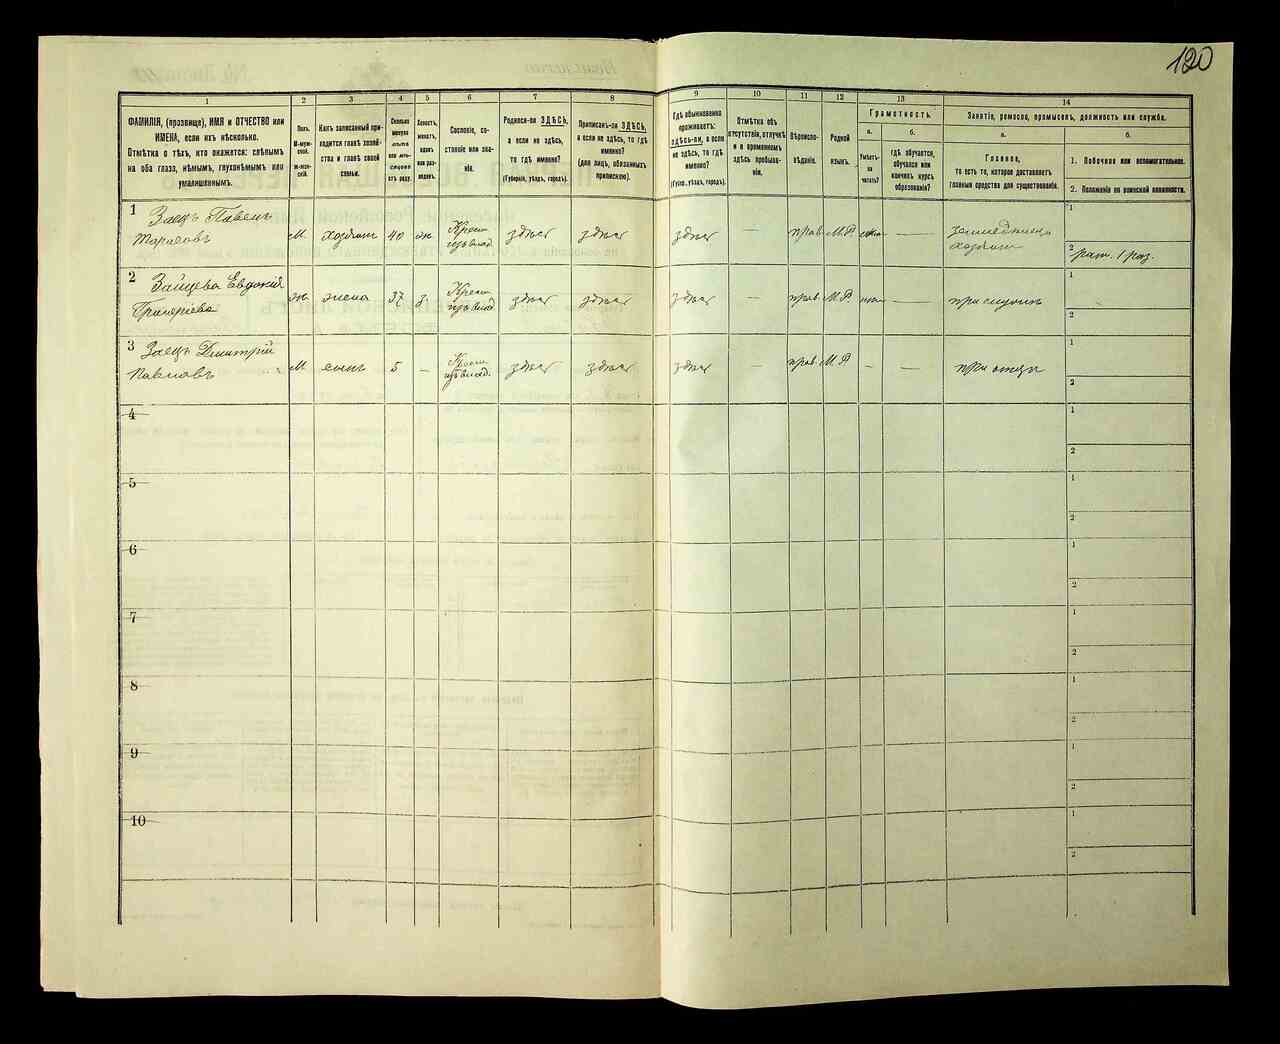 120
1
2
3
4
5
6
7
8
9
10
11
12
13
14
ФАМИЛІЯ, (прозвище), ИМЯ и ОТЧЕСТВО или
ИМЕНА, если ихъ нѣсколько.
Отмѣтка о тѣхъ, кто окажется: слѣпымъ
на оба глаза, нѣмымъ, глухонѣмымъ или
умалишеннымъ.
Полъ.
М-муж-
ской.
Ж-жен-
скій.
Какъ записанный при-
ходится главѣ хозяй-
ства и главѣ своей
семьи.
Сколько
минуло
лѣтъ
или мѣ-
сяцевъ
отъ роду.
Холостъ,
женатъ,
вдовъ
или раз-
веденъ.
Сословіе, со-
стояніе или зва-
ніе.
Родился-ли ЗДѢСЬ,
а если не здѣсь,
то гдѣ именно?
(Губернія, уѣздъ, городъ).
Приписанъ-ли ЗДѢСЬ,
а если не здѣсь, то гдѣ
именно?
(для лицъ, обязанныхъ
припиской).
Гдѣ обыкновенно
проживаетъ:
ЗДѢСЬ-ЛИ, а если
не здѣсь, то гдѣ
именно?
(Губер., уѣздъ, городъ).
Отмѣтка объ
отсутствіи, отлучкѣ
и о временномъ
здѣсь пребыва-
ніи.
Вѣроиспо-
вѣданіе.
Родной
языкъ.
Грамотность.
а.
Умѣетъ-
ли
читать?
б.
гдѣ обучается,
обучался или
кончилъ курсъ
образованія?
Занятіе, ремесло, промыселъ, должность или служба.
а.
Главное,
то есть то, которое доставляетъ
главныя средства для существованія.
б.
1. Побочное или вспомогательное.
2. Положеніе по воинской повинности.
1 Заецъ Павелъ
Тарасовъ
М. хозяинъ 40 ж. Крест. здѣсь здѣсь здѣсь — прав. М.Р. —
1
2 рат. 1 раз.
2 Зайцева Евдокія
Григоріева
ж. жена 37 з. Крест. здѣсь здѣсь здѣсь — прав. М.Р. —
1
2
3 Заецъ Дмитрій
Павловъ
М. сынъ 5 — Крест. здѣсь здѣсь здѣсь — прав. М.Р. — — при отцѣ
1
2
4
1
2
5
1
2
6
1
2
7
1
2
8
1
2
9
1
2
10
1
2